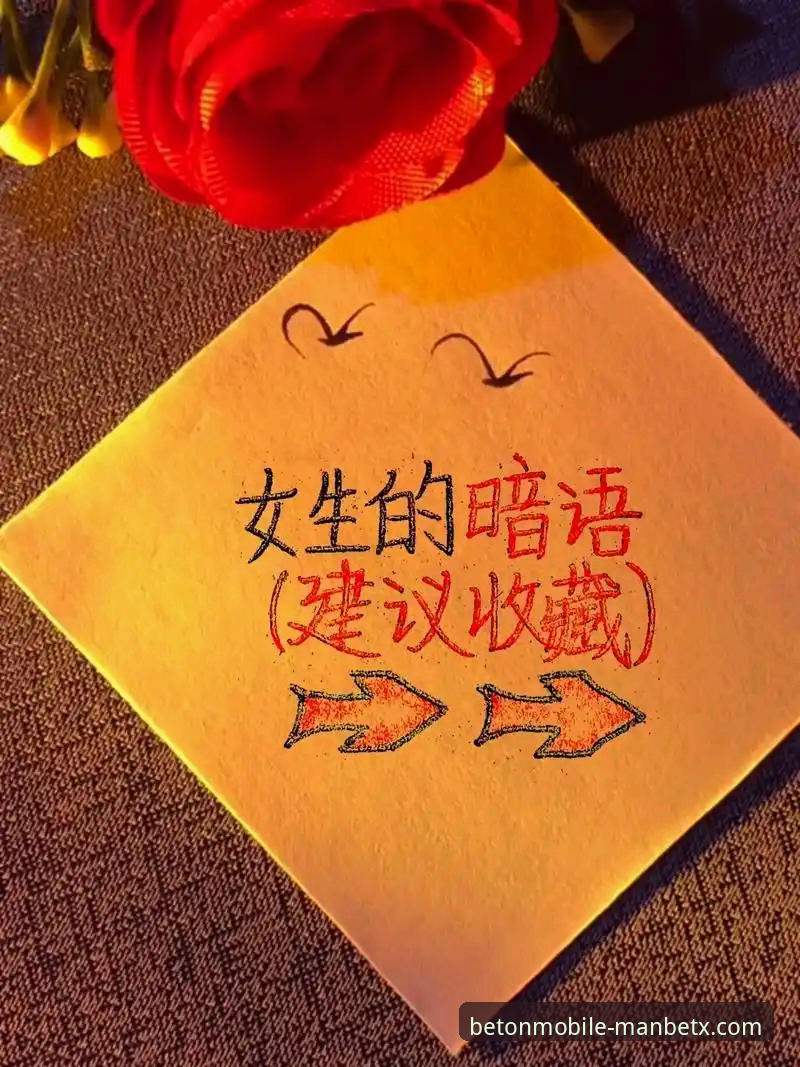 女生的暗语
(建议收藏)
betonmobile-manbetx.com